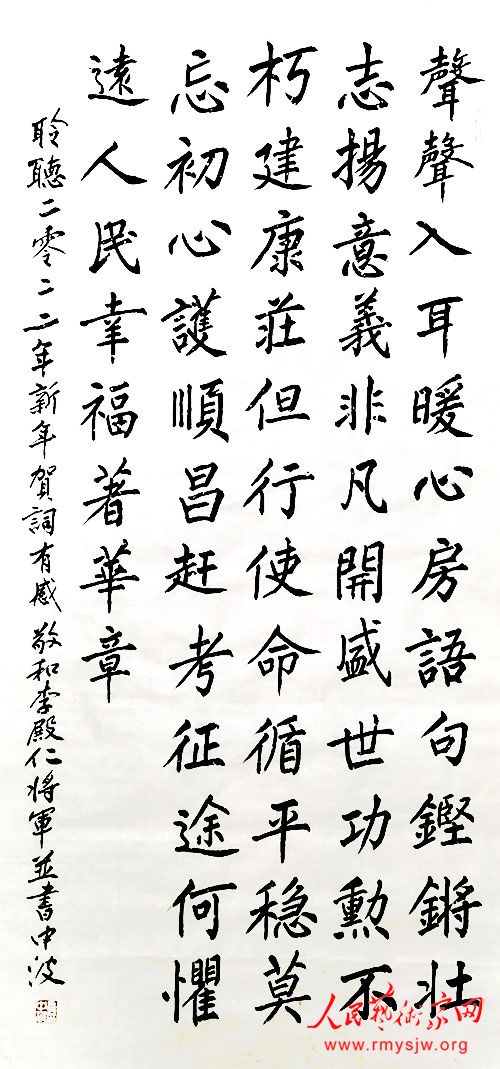 聲聲入耳暖心房語句鏗鏘壯
志揚意義非凡開盛世功勳不
朽建康莊但行使命循平穩莫
忘初心護順昌赶考征途何懼
遠人民幸福著華章
聆聽二零二二年新年賀詞有感 敬和李殿仁將軍並書中波
人民藝術家网
www.rmysjw.org